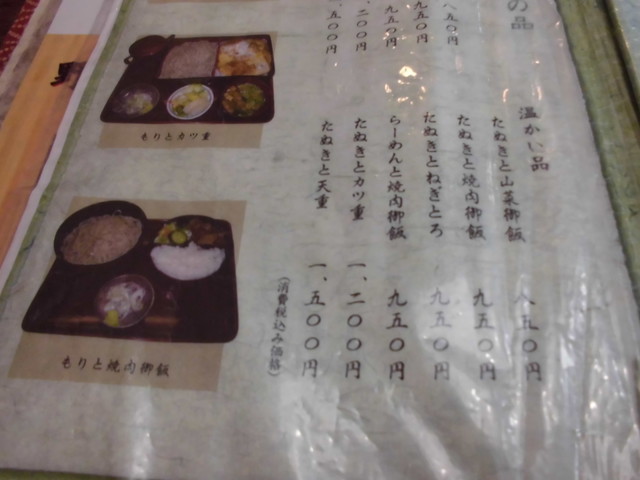 の品
八五〇円
九五〇円
九五〇円
一、二〇〇円
一、五〇〇円
温かい品
たぬきと山菜御飯 八五〇円
たぬきと焼肉御飯 九五〇円
たぬきとねぎとろ 九五〇円
らーめんと焼肉御飯 九五〇円
たぬきとカツ重 一、二〇〇円
たぬきと天重 一、五〇〇円
(消費税込み価格)
もりとカツ重
もりと焼肉御飯